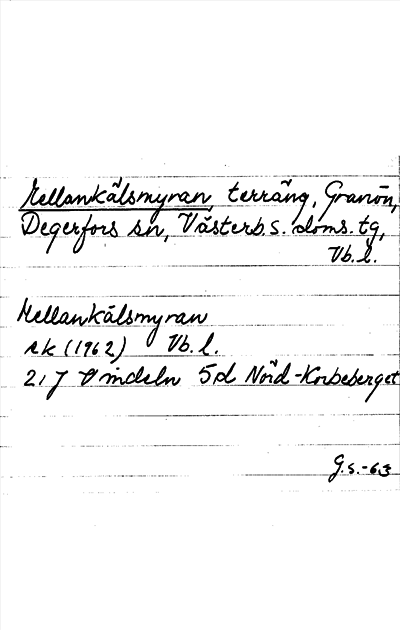 Mellankälsmyran, terräng, Granön,
Degerfors sn, Västerb. s. doms. tg,
Vb. l.
Mellankälsmyran
rk (1962) Vb. l.
21 J Vindeln 5d Nörd-Korbeberget
G.s.-63